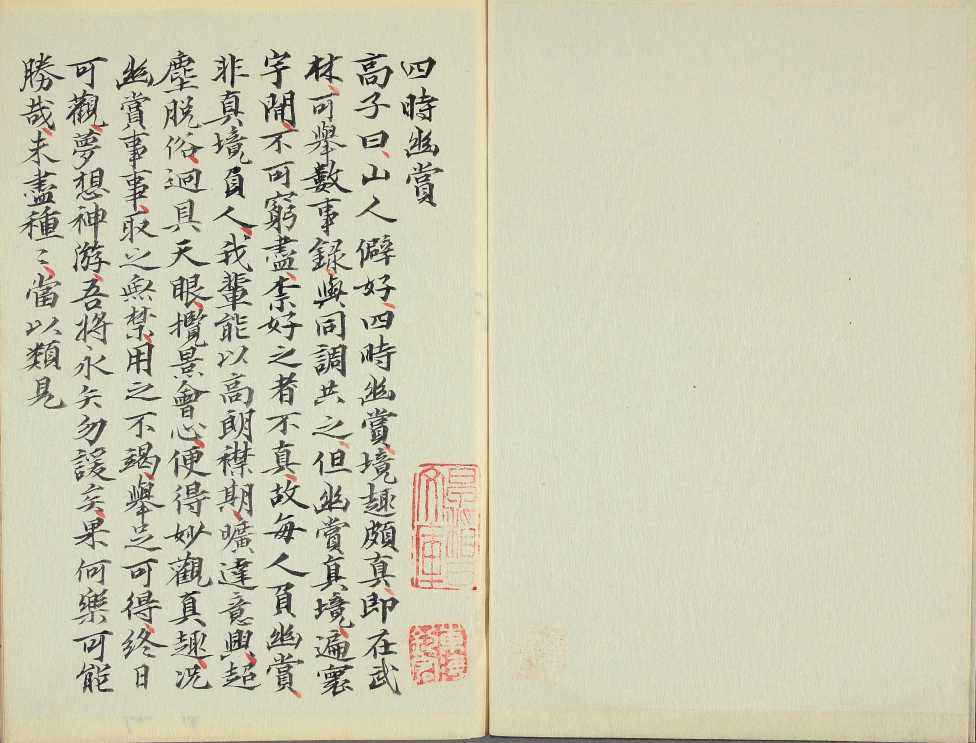 四時幽賞
高子曰、山人僻好、四時幽賞、境趣頗真、即在武
林、可舉數事、録與同調共之、但幽賞真境、遍寰
宇間、不可窮盡、柰好之者不真、故每人負幽賞、
非真境負人、我輩能以高朗襟期、曠達意興、超
塵脫俗、迥具天眼、攬景會心、便得妙觀真趣、况
幽賞事事、取之無禁、用之不竭、舉足可得、終日
可觀、夢想神游、吾將永矢勿諼矣、果何樂可能
勝哉、未盡種〻、當以類見